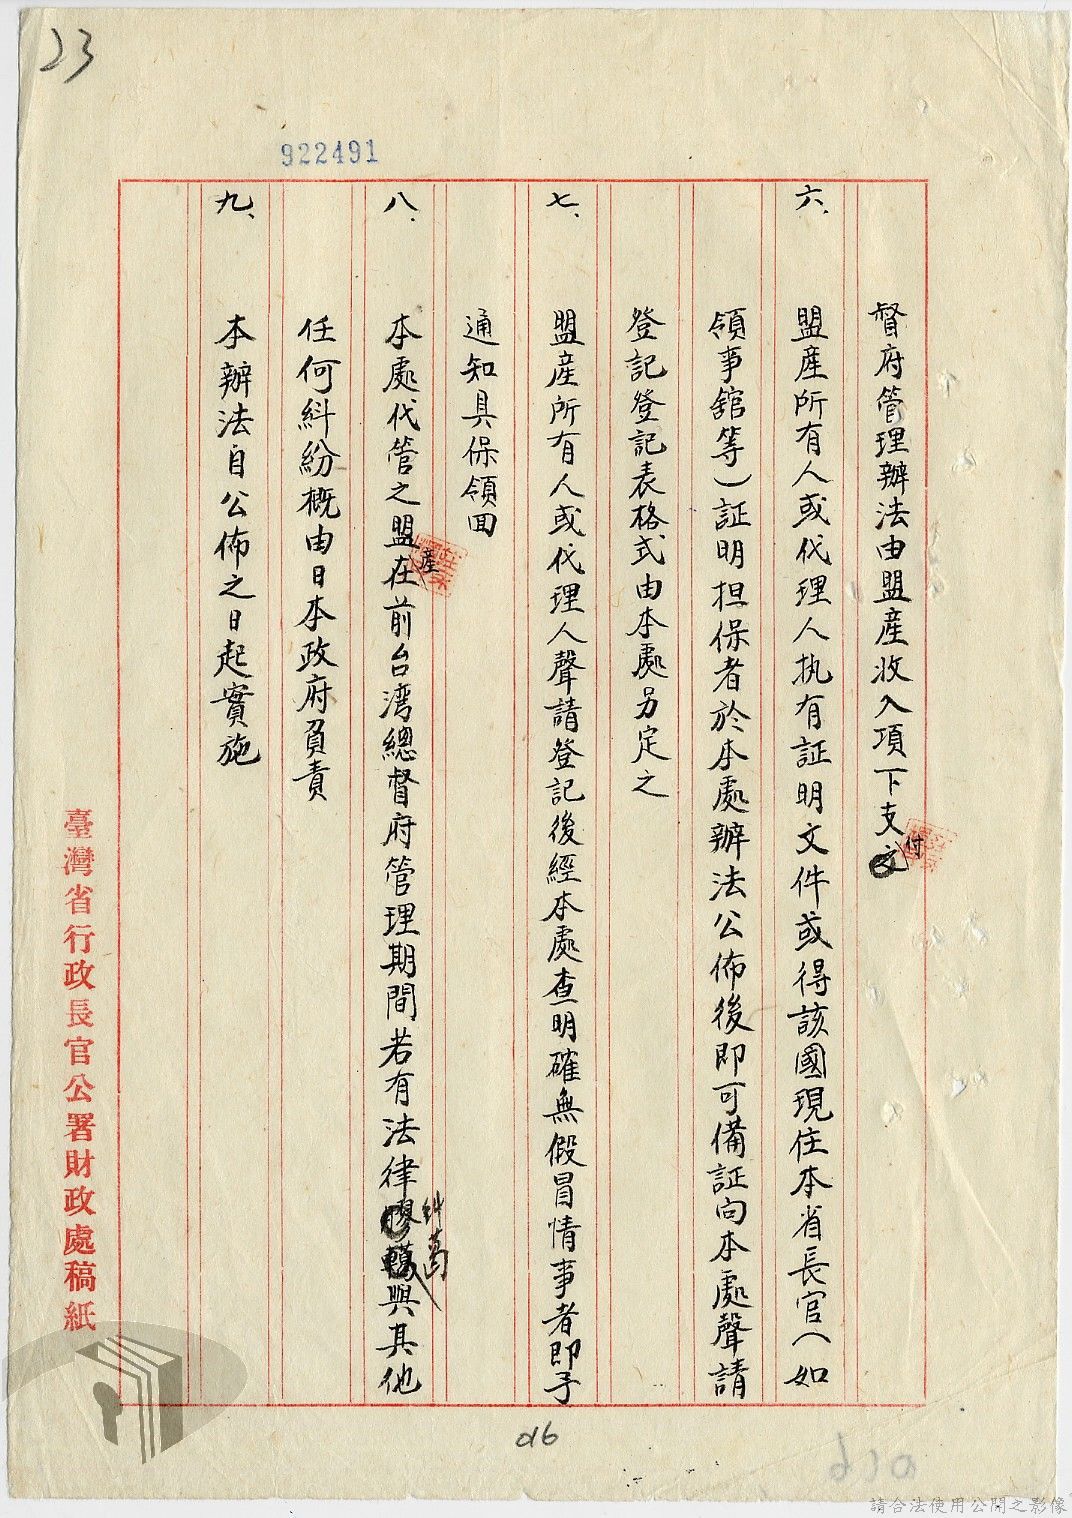 23
922491
督府管理辦法由盟產收入項下支付
六、盟產所有人或代理人执有証明文件或得該國現住本省長官(如
領事舘等)証明担保者於本處辦法公佈後即可備証向本處聲請
登記登記表格式由本處另定之
七、盟產所有人或代理人聲請登記後經本處查明確無假冒情事者即予
通知具保領回
八、本處代管之盟產在前台湾總督府管理期間若有法律糾葛與其他
任何糾紛概由日本政府負責
九、本辦法自公佈之日起實施
臺灣省行政長官公署財政處稿紙
016
請合法使用公開之影像